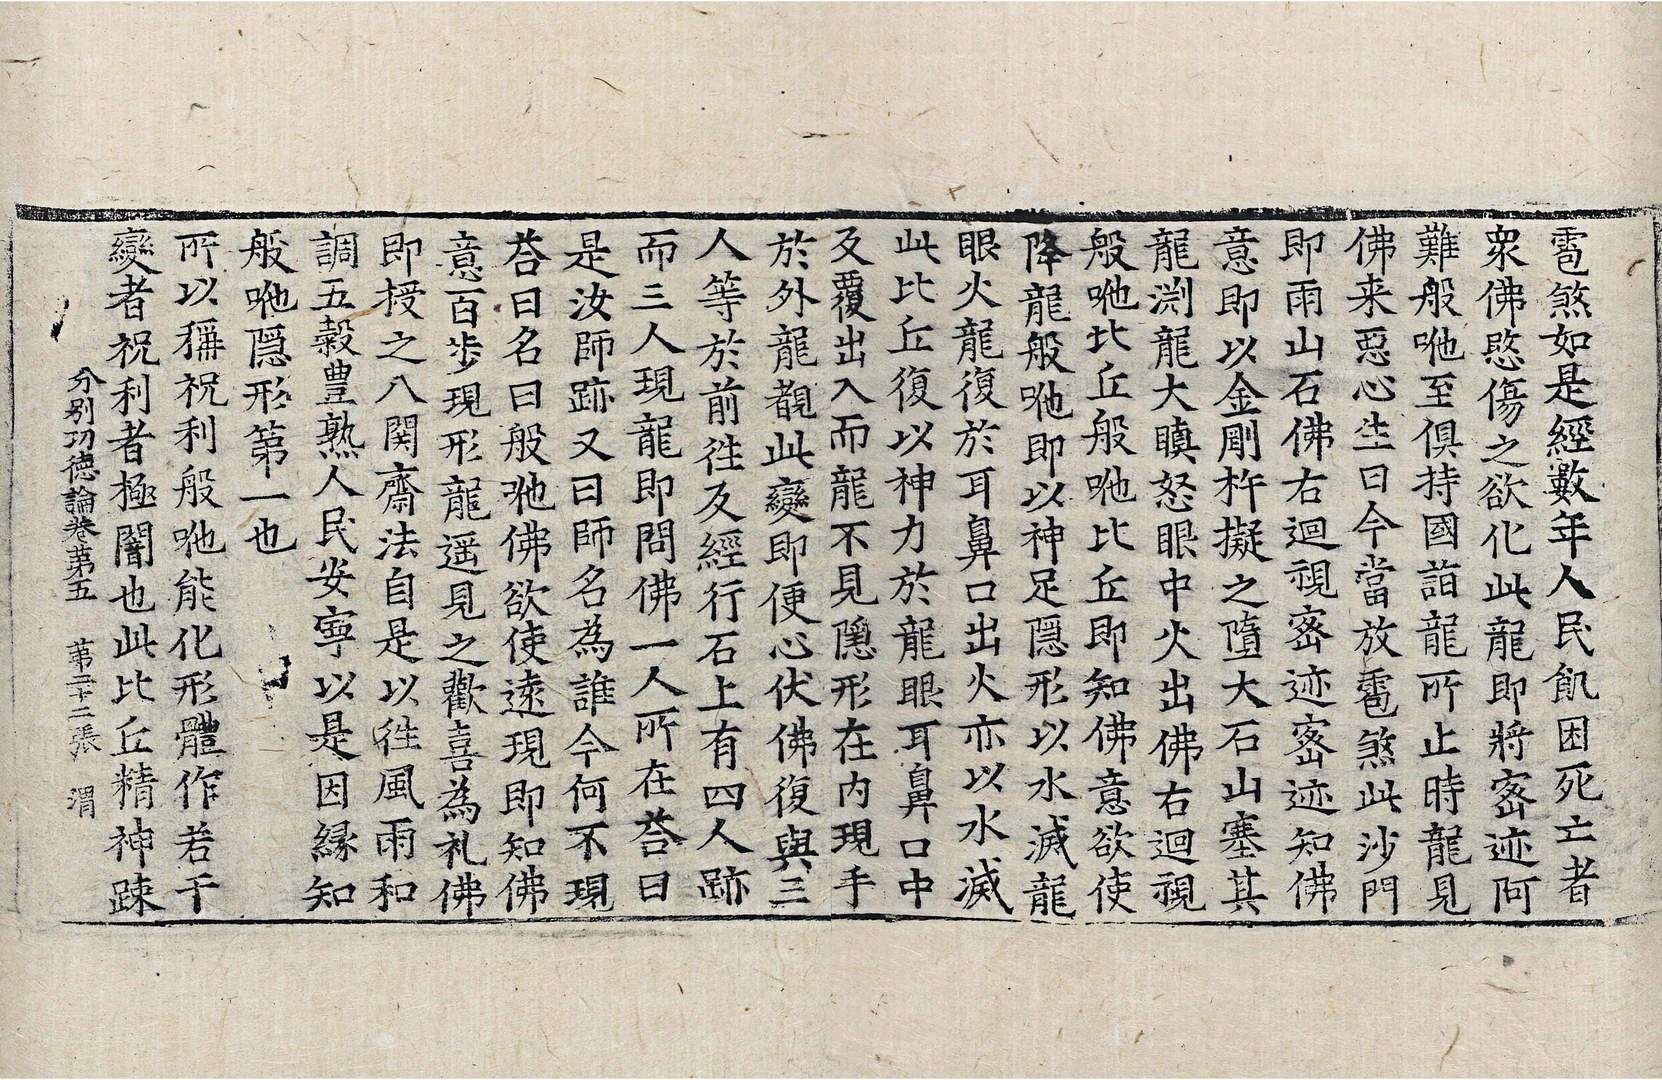 雹煞如是經數年人民飢困死亡者
衆佛愍傷之欲化此龍即將密迹阿
難般咃至俱持國詣龍所止時龍見
佛来惡心生曰今當放雹煞此沙門
即雨山石佛右迴視密迹密迹知佛
意即以金剛杵擬之墮大石山塞其
龍渕龍大瞋怒眼中火出佛右迴視
般咃比丘般咃比丘即知佛意欲使
降龍般咃即以神足隱形以水滅龍
眼火龍復於耳鼻口出火亦以水滅
此比丘復以神力於龍眼耳鼻口中
反覆出入而龍不見隱形在內現手
於外龍覩此變即便心伏佛復與三
人等於前往反經行石上有四人跡
而三人現龍即問佛一人所在荅曰
是汝師跡又曰師名為誰今何不現
荅曰名曰般咃佛欲使遠現即知佛
意百步現形龍遥見之歡喜為礼佛
即授之八関齋法自是以往風雨和
調五穀豊熟人民安寧以是因縁知
般咃隱形第一也
所以稱祝利般咃能化形體作若干
變者祝利者極闇也此比丘精神踈
分别功德論卷第五　第二十二張　渭